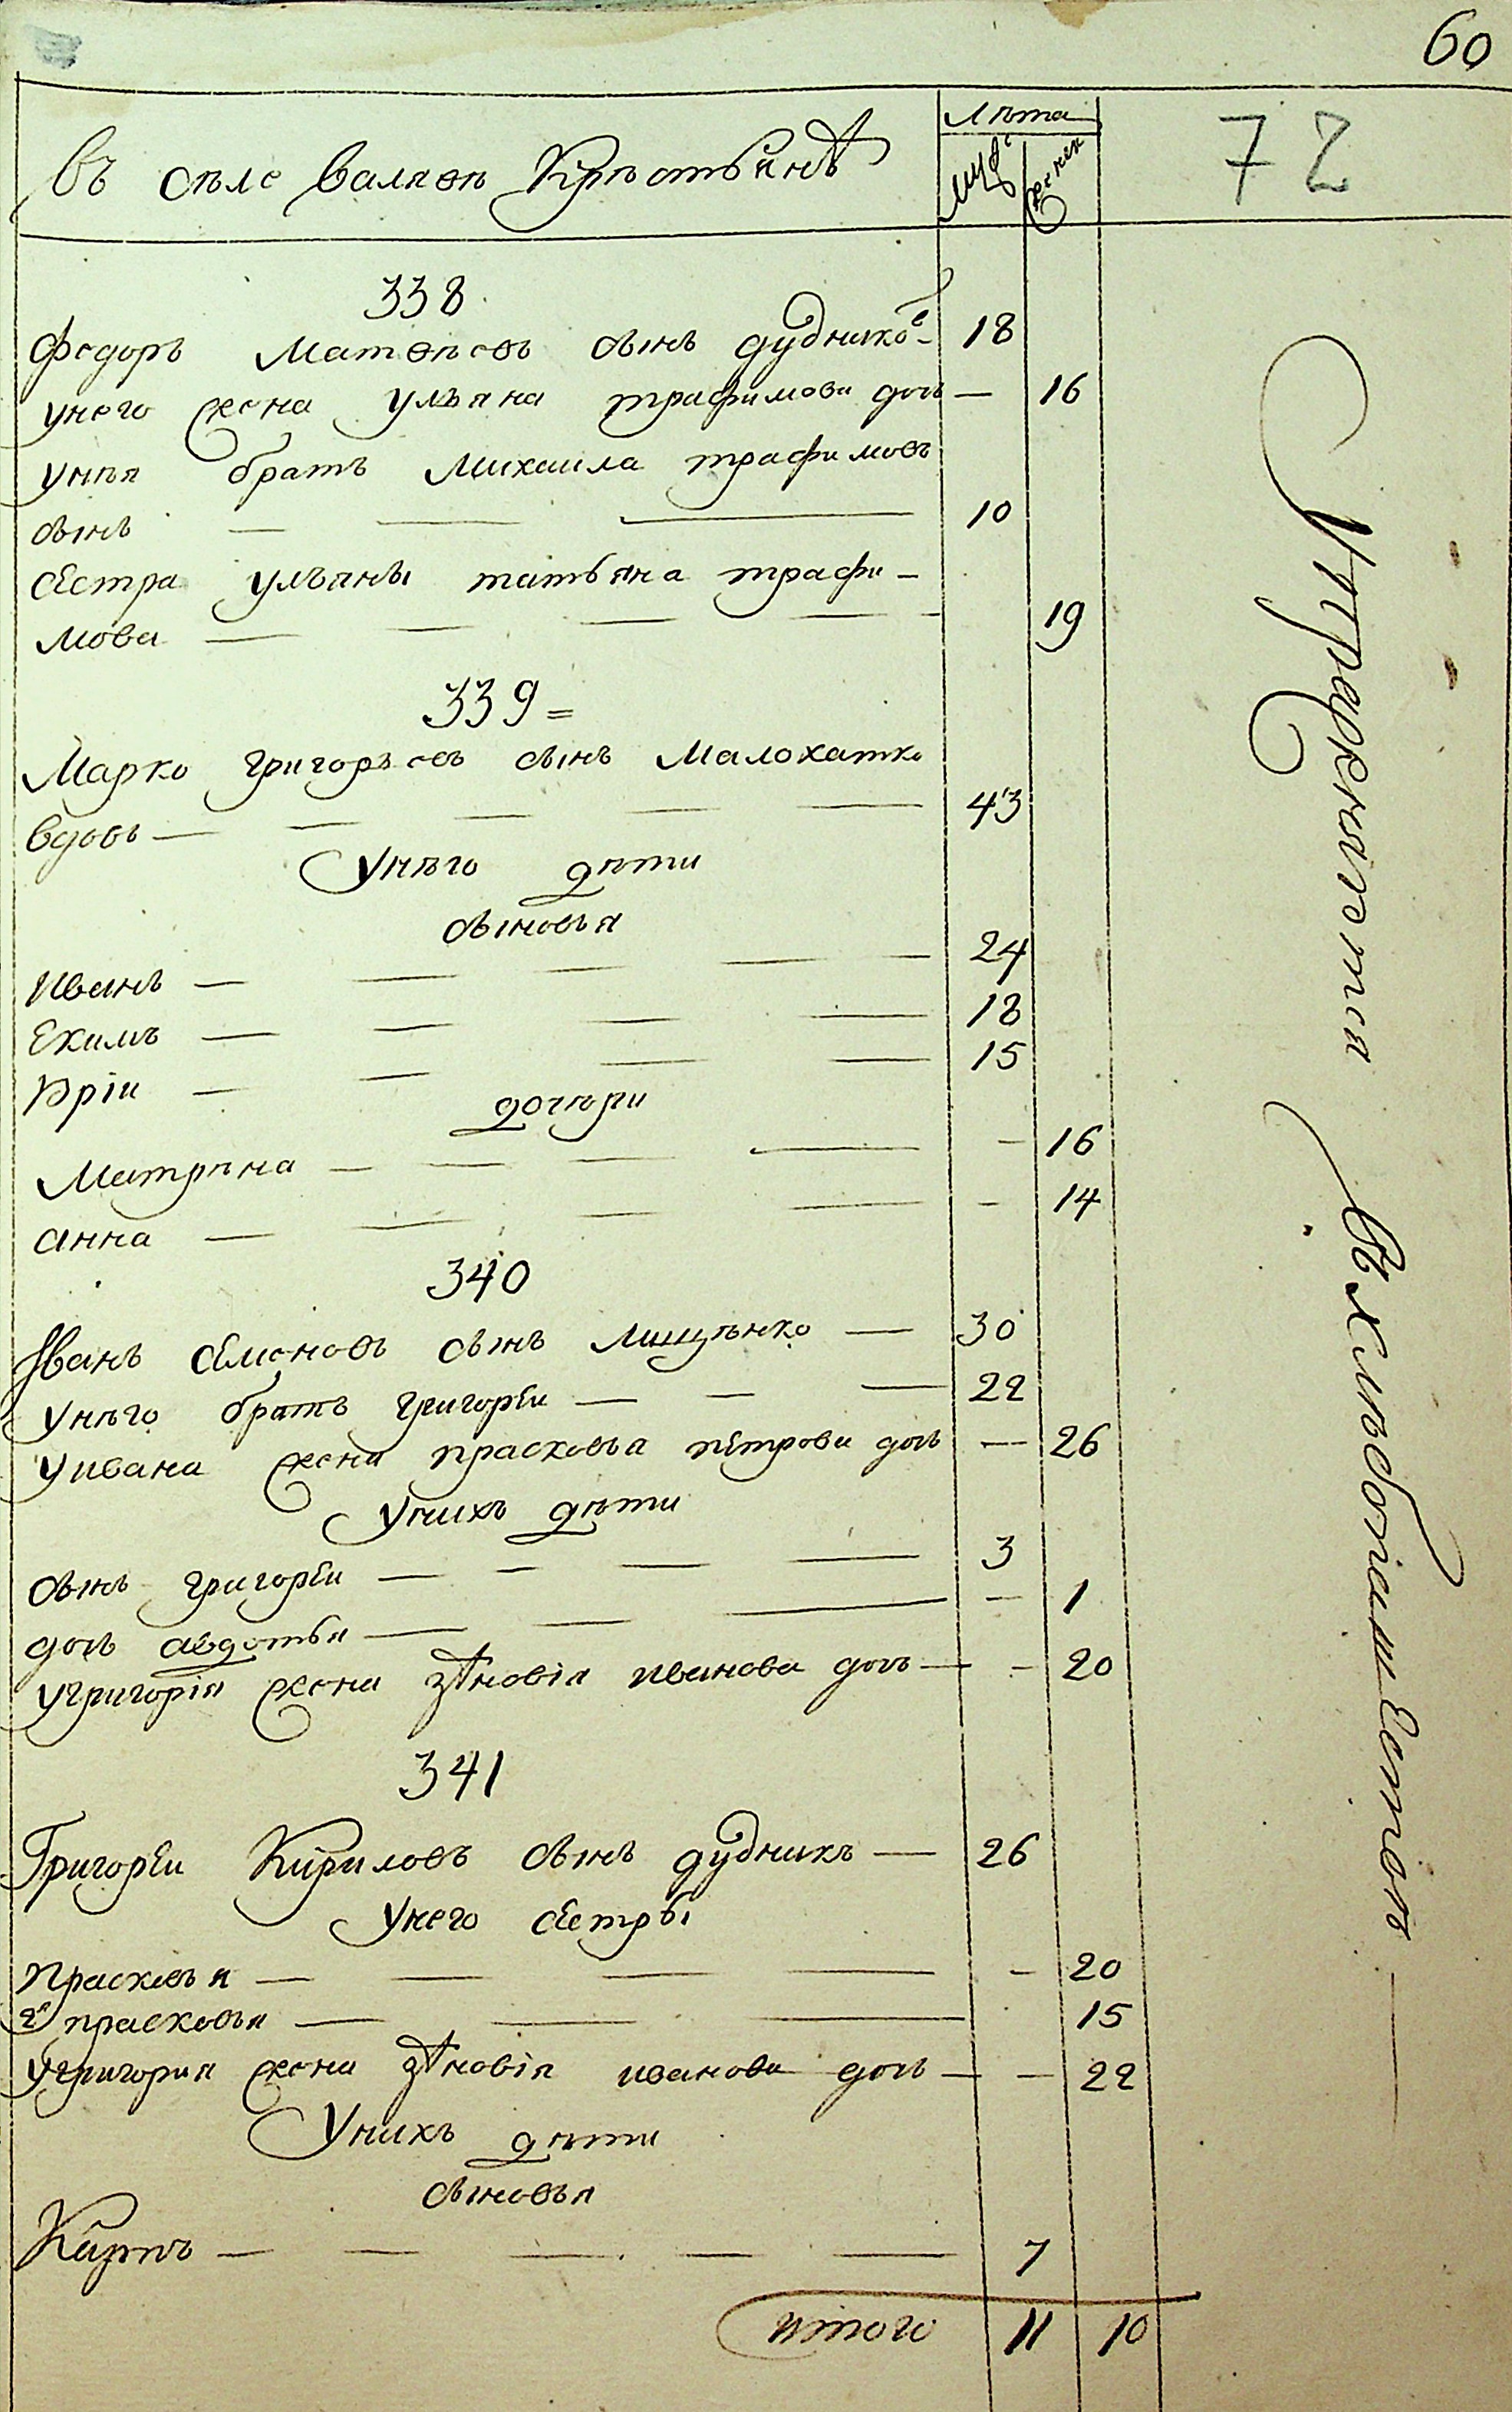 60
72
въ сѣле валкѣ Крѣстьянѣ
Лѣта
муже
женск
338
федоръ Матвѣевъ сынъ дуднико 18
у него жена ульяна трафимова дочь — 16
у нѣя братъ Михаила трафимовъ
сынъ — — — 10
сестра ульяны татьяна трафи-
мова — — — — — 19
339 =
Марко григорьевъ сынъ Малохатко
вдовъ — — — — — 43
У нѣго дѣти
сыновья
иванъ — — — — — 24
Екимъ — — — — 18
юріи — — — — 15
дочѣри
Матрѣна — — — — — 16
анна — — — — — 14
340
Иванъ семеновъ сынъ — 30
У нѣго братъ григорѣи — — — 22
у ивана жена прасковья пЕтрова дочь — 26
У нихъ дѣти
сынъ григорѣи — — — — 3
дочь авдотья — — — — 1
у григорія жена зѣновія иванова дочь — — 20
341
Григорѣи Кириловъ сынъ дудникъ — 26
У него сестры
прасковья — — — — — 20
2я прасковья — — — 15
у григория жена зѣновія иванова дочь — — 22
У нихъ дѣти
сыновья
Карпъ — — — — — 7
итого 11 10